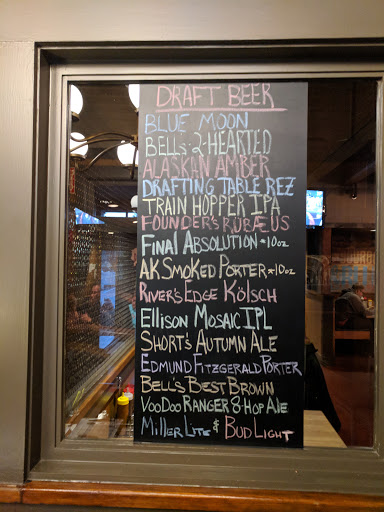 DRAFT BEER
BLUE MOON
BELLS 2-HEARTED
ALASKAN AMBER
DRAFTING TABLE REZ
TRAIN HOPPER IPA
FOUNDER'S RUBÆUS
FINAL ABSOLUTION *10oz
AK SMOKED PORTER *10oz
RIVER'S EDGE KÖLSCH
ELLISON MOSAIC IPL
SHORT'S AUTUMN ALE
EDMUND FITZGERALD PORTER
BELL'S BEST BROWN
VOODOO RANGER 8-HOP ALE
MILLER LITE & BUD LIGHT